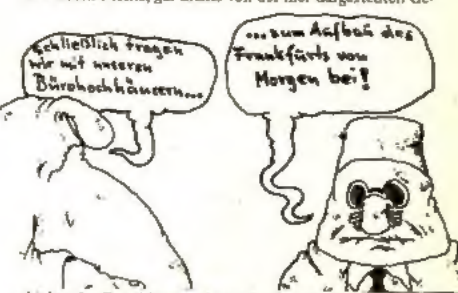 schließlich tragen
wir mit unseren
Bürohochhäusern...
...zum Aufbau des
Frankfurts von
Morgen bei!